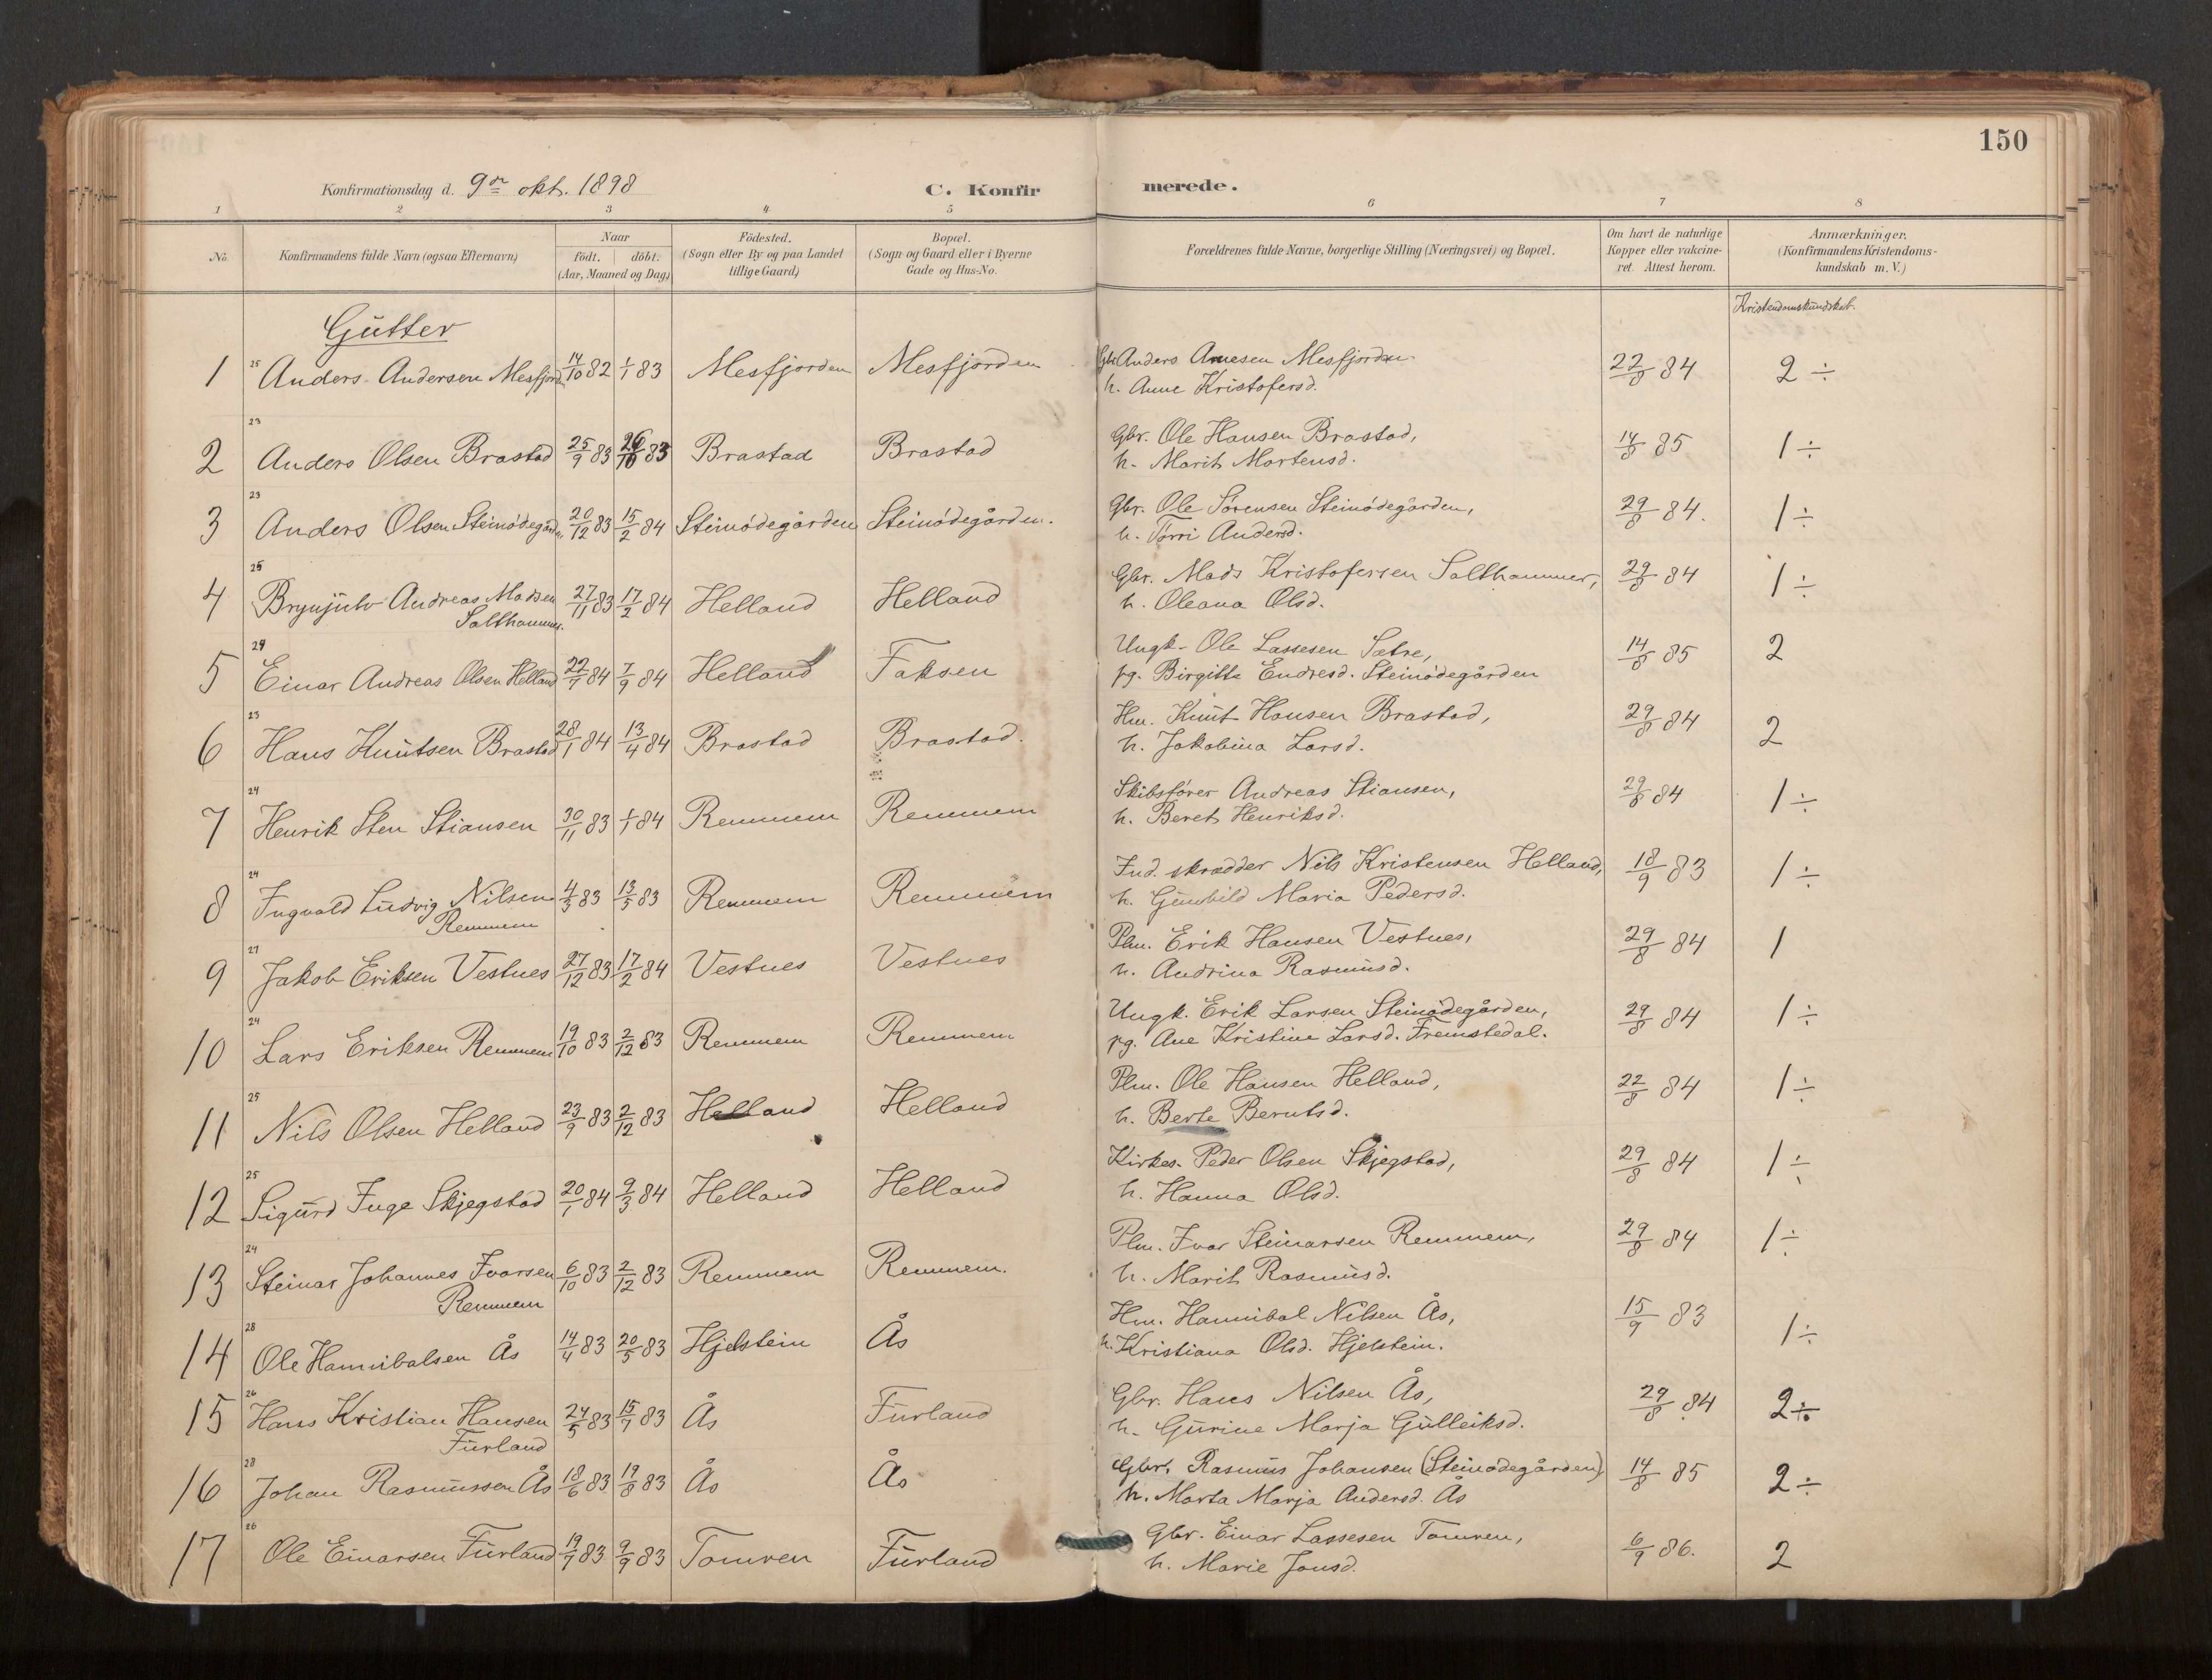 150
Konfirmationsdag d. 9de okt. 1898 C. Konfirmerede.
1 2 3 4 5 6 7 8
No. Konfirmandens fulde Navn (ogsaa Efternavn) Naar födt. döbt. (Aar, Maaned og Dag) Födested. (Sogn eller By og paa Landet tillige Gaard) Bopæl. (Sogn og Gaard eller i Byerne Gade og Hus-No. Forældrenes fulde Navne, borgerlige Stilling (Næringsvei) og Bopæl. Om havt de naturlige Kopper eller vakcineret. Attest herom. Anmærkninger, (Konfirmandens Kristendomskundskab m. V.)
Kristendomskundskab.
Gutter
1 25 Anders Andersen Mesfjord 14/10 82 1/1 83 Mesfjorden Mesfjorden Gbr. Anders Arnesen Mesfjorden 22/8 84 2 ÷
h. Anne Kristofersd.
2 23 Anders Olsen Brastad 25/9 83 26/10 83 Brastad Brastad Gbr. Ole Hansen Brastad, 14/8 85 1 ÷
h. Marit Mortensd.
3 23 Anders Olsen Steinödegården 20/12 83 15/2 84 Steinödegården Steinödegården. Gbr. Ole Sörensen Steinödegården, 29/8 84. 1 ÷
h. Törri Andersd.
4 25 Brynjulv Andreas Madsen Salthammer. 27/11 83 17/2 84 Helland Helland Gbr. Mads Kristofersen Salthammer, 29/8 84 1 ÷
h. Oleana Olsd.
5 24 Einar Andreas Olsen Helland 22/7 84 7/9 84 Helland Faksen Ungk. Ole Lassesen Sætre, 14/8 85 2
pg. Birgitte Endresd. Steinödegården
6 23 Hans Knutsen Brastad 28/1 84 13/4 84 Brastad Brastad. Hm. Knut Hansen Brastad, 29/8 84 2
h. Jakobina Larsd.
7 24 Henrik Sten Stiansen 30/11 83 1/1 84 Remmem Remmem Skibsförer Andreas Stiansen, 29/8 84 1 ÷
h. Beret Henriksd.
8 24 Ingvald Ludvig Nilsen Remmem 4/3 83 13/5 83 Remmem Remmem Ind. skrædder Nils Kristensen Helland, 18/9 83 1 ÷
h. Gunhild Maria Pedersd.
9 27 Jakob Eriksen Vestnes 27/12 83 17/2 84 Vestnes Vestnes Plm. Erik Hansen Vestnes, 29/8 84 1
h. Andrina Rasmusd.
10 24 Lars Eriksen Remmem 19/10 83 2/12 83 Remmem Remmem Ungk. Erik Larsen Steinödegården, 29/8 84 1 ÷
pg. Ane Kristine Larsd. Fremstedal.
11 25 Nils Olsen Helland 23/9 83 2/12 83 Helland Helland Plm. Ole Hansen Helland, 22/8 84 1 ÷
h. Berte Berntsd.
12 25 Sigurd Inge Skjegstad 20/1 84 9/3 84 Helland Helland Kirkes. Peder Olsen Skjegstad, 29/8 84 1 ÷
h. Hanna Olsd.
13 24 Steinar Johannes Ivarsen Remmem 6/10 83 2/12 83 Remmem Remmem. Plm. Ivar Steinarsen Remmem, 29/8 84 1 ÷
h. Marit Rasmusd.
14 28 Ole Hannibalsen Ås 14/4 83 20/5 83 Hjelstein Ås Hm. Hannibal Nilsen Ås, 15/9 83 1 ÷
h. Kristiana Olsd. Hjelstein.
15 26 Hans Kristian Hansen Furland 24/5 83 15/7 83 Ås Furland Gbr. Hans Nilsen Ås, 29/8 84 2 ÷
h. Gurine Marja Gulleiksd.
16 28 Johan Rasmussen Ås 18/6 83 19/8 83 Ås Ås Gbr. Rasmus Johansen (Steinödegården), 14/8 85 2 ÷
h. Marta Marja Andersd. Ås
17 26 Ole Einarsen Furland 19/7 83 9/9 83 Tomren Furland Gbr. Einar Lassesen Tomren, 6/9 86. 2
h. Marie Jonsd.